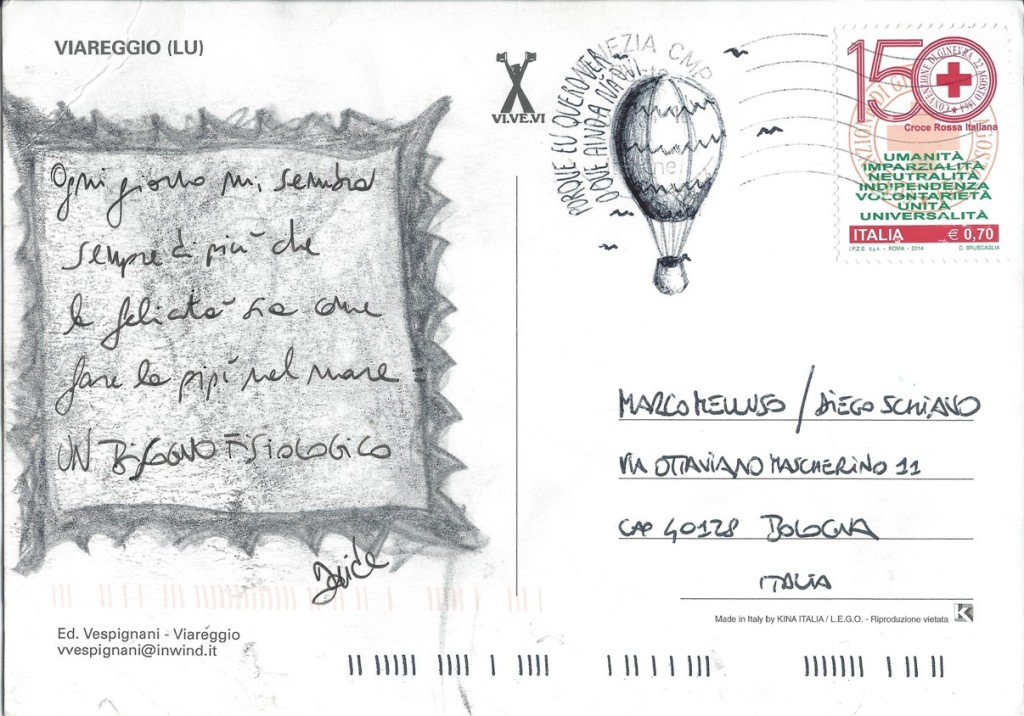 VIAREGGIO (LU)
VI.VE.VI
VENEZIA CMP
PORQUE EU QUERO VER
O QUE AINDA NÃO VI.
150
CONVENZIONE DI GINEVRA 22 AGOSTO 1864
Croce Rossa Italiana
UMANITÀ
IMPARZIALITÀ
NEUTRALITÀ
INDIPENDENZA
VOLONTARIETÀ
UNITÀ
UNIVERSALITÀ
ITALIA € 0,70
I.P.Z.S. S.p.A. - ROMA - 2014 C. BRUSCAGLIA
Ogni giorno mi sembra
sempre di più che
la felicità sia come
fare la pipì nel mare
UN BISOGNO FISIOLOGICO
MARCO MELLUSO / DIEGO SCHIANO
VIA OTTAVIANO MASCHERINO 11
CAP 40128 BOLOGNA
ITALIA
Made in Italy by KINA ITALIA / L.E.G.O. - Riproduzione vietata
K
Ed. Vespignani - Viareggio
vvespignani@inwind.it